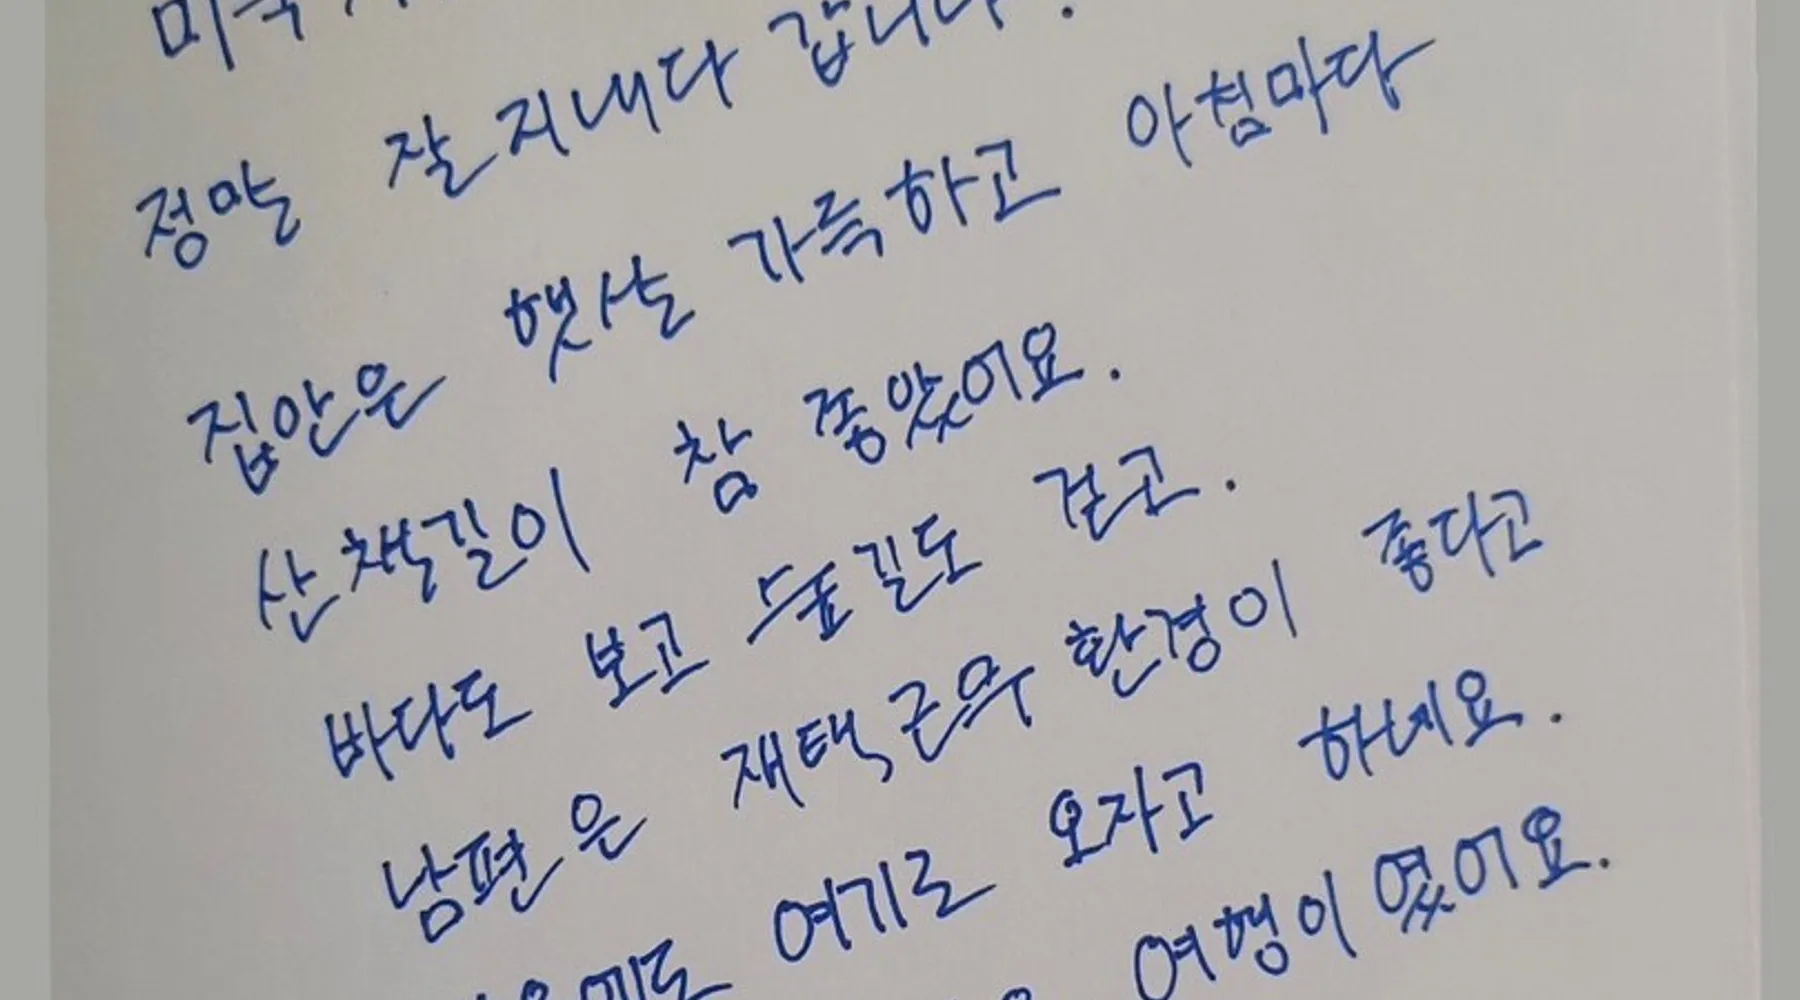 미국
정말 잘 지내다 갑니다.
집안은 햇살 가득하고 아침마다
산책길이 참 좋았어요.
바다도 보고 숲길도 걷고.
남편은 재택근무 환경이 좋다고
여기로 오자고 하네요.
여행이였어요.